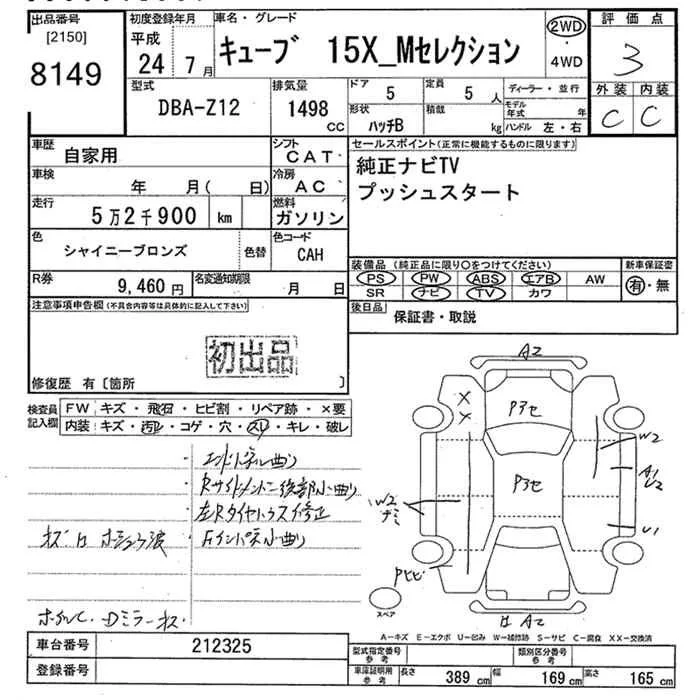 出品番号
[2150]
8149
初度登録年月
平成
24年 7月
車名・グレード
キューブ 15X_Mセレクション
2WD
・
4WD
評価点
3
外装 内装
C C
型式
DBA-Z12
排気量
1498
CC
ドア
5
定員
5人
形状
ハッチB
積載
kg
ディーラー・並行
モデル年式 年
ハンドル 左・右
車歴
自家用
シフト
CAT
車検
年 月( 日)
冷房
AC
走行
5万2千900 km
燃料
ガソリン
色
シャイニーブロンズ
色替
色コード
CAH
R券
9,460円
名変通知期限
月 日
セールスポイント(正常に機能するものに限ります)
純正ナビTV
プッシュスタート
装備品(純正品に限り○をつけてください)
PS PW ABS エアB AW
SR ナビ TV カワ
新車保証書
有・無
後日品
保証書・取説
注意事項申告欄(不具合内容等は具体的に記入して下さい)
初出品
修復歴 有〔箇所 〕
検査員記入欄
FW キズ・飛石・ヒビ割・リペア跡・×要
内装:キズ・汚レ・コゲ・穴・スレ・キレ・破レ
左Rタイヤハウス修正
A2
X
X
P3セ
P3セ
W2
A1
U2
U1
W2
ナミ
A2
スペア
A-キズ E-エクボ U-凹み W-補修跡 S-サビ C-腐食 XX-交換済
車台番号
212325
登録番号
型式指定番号
参考
類別区分番号
参考
車庫証明用
参考
長さ 389 cm 幅 169 cm 高さ 165 cm